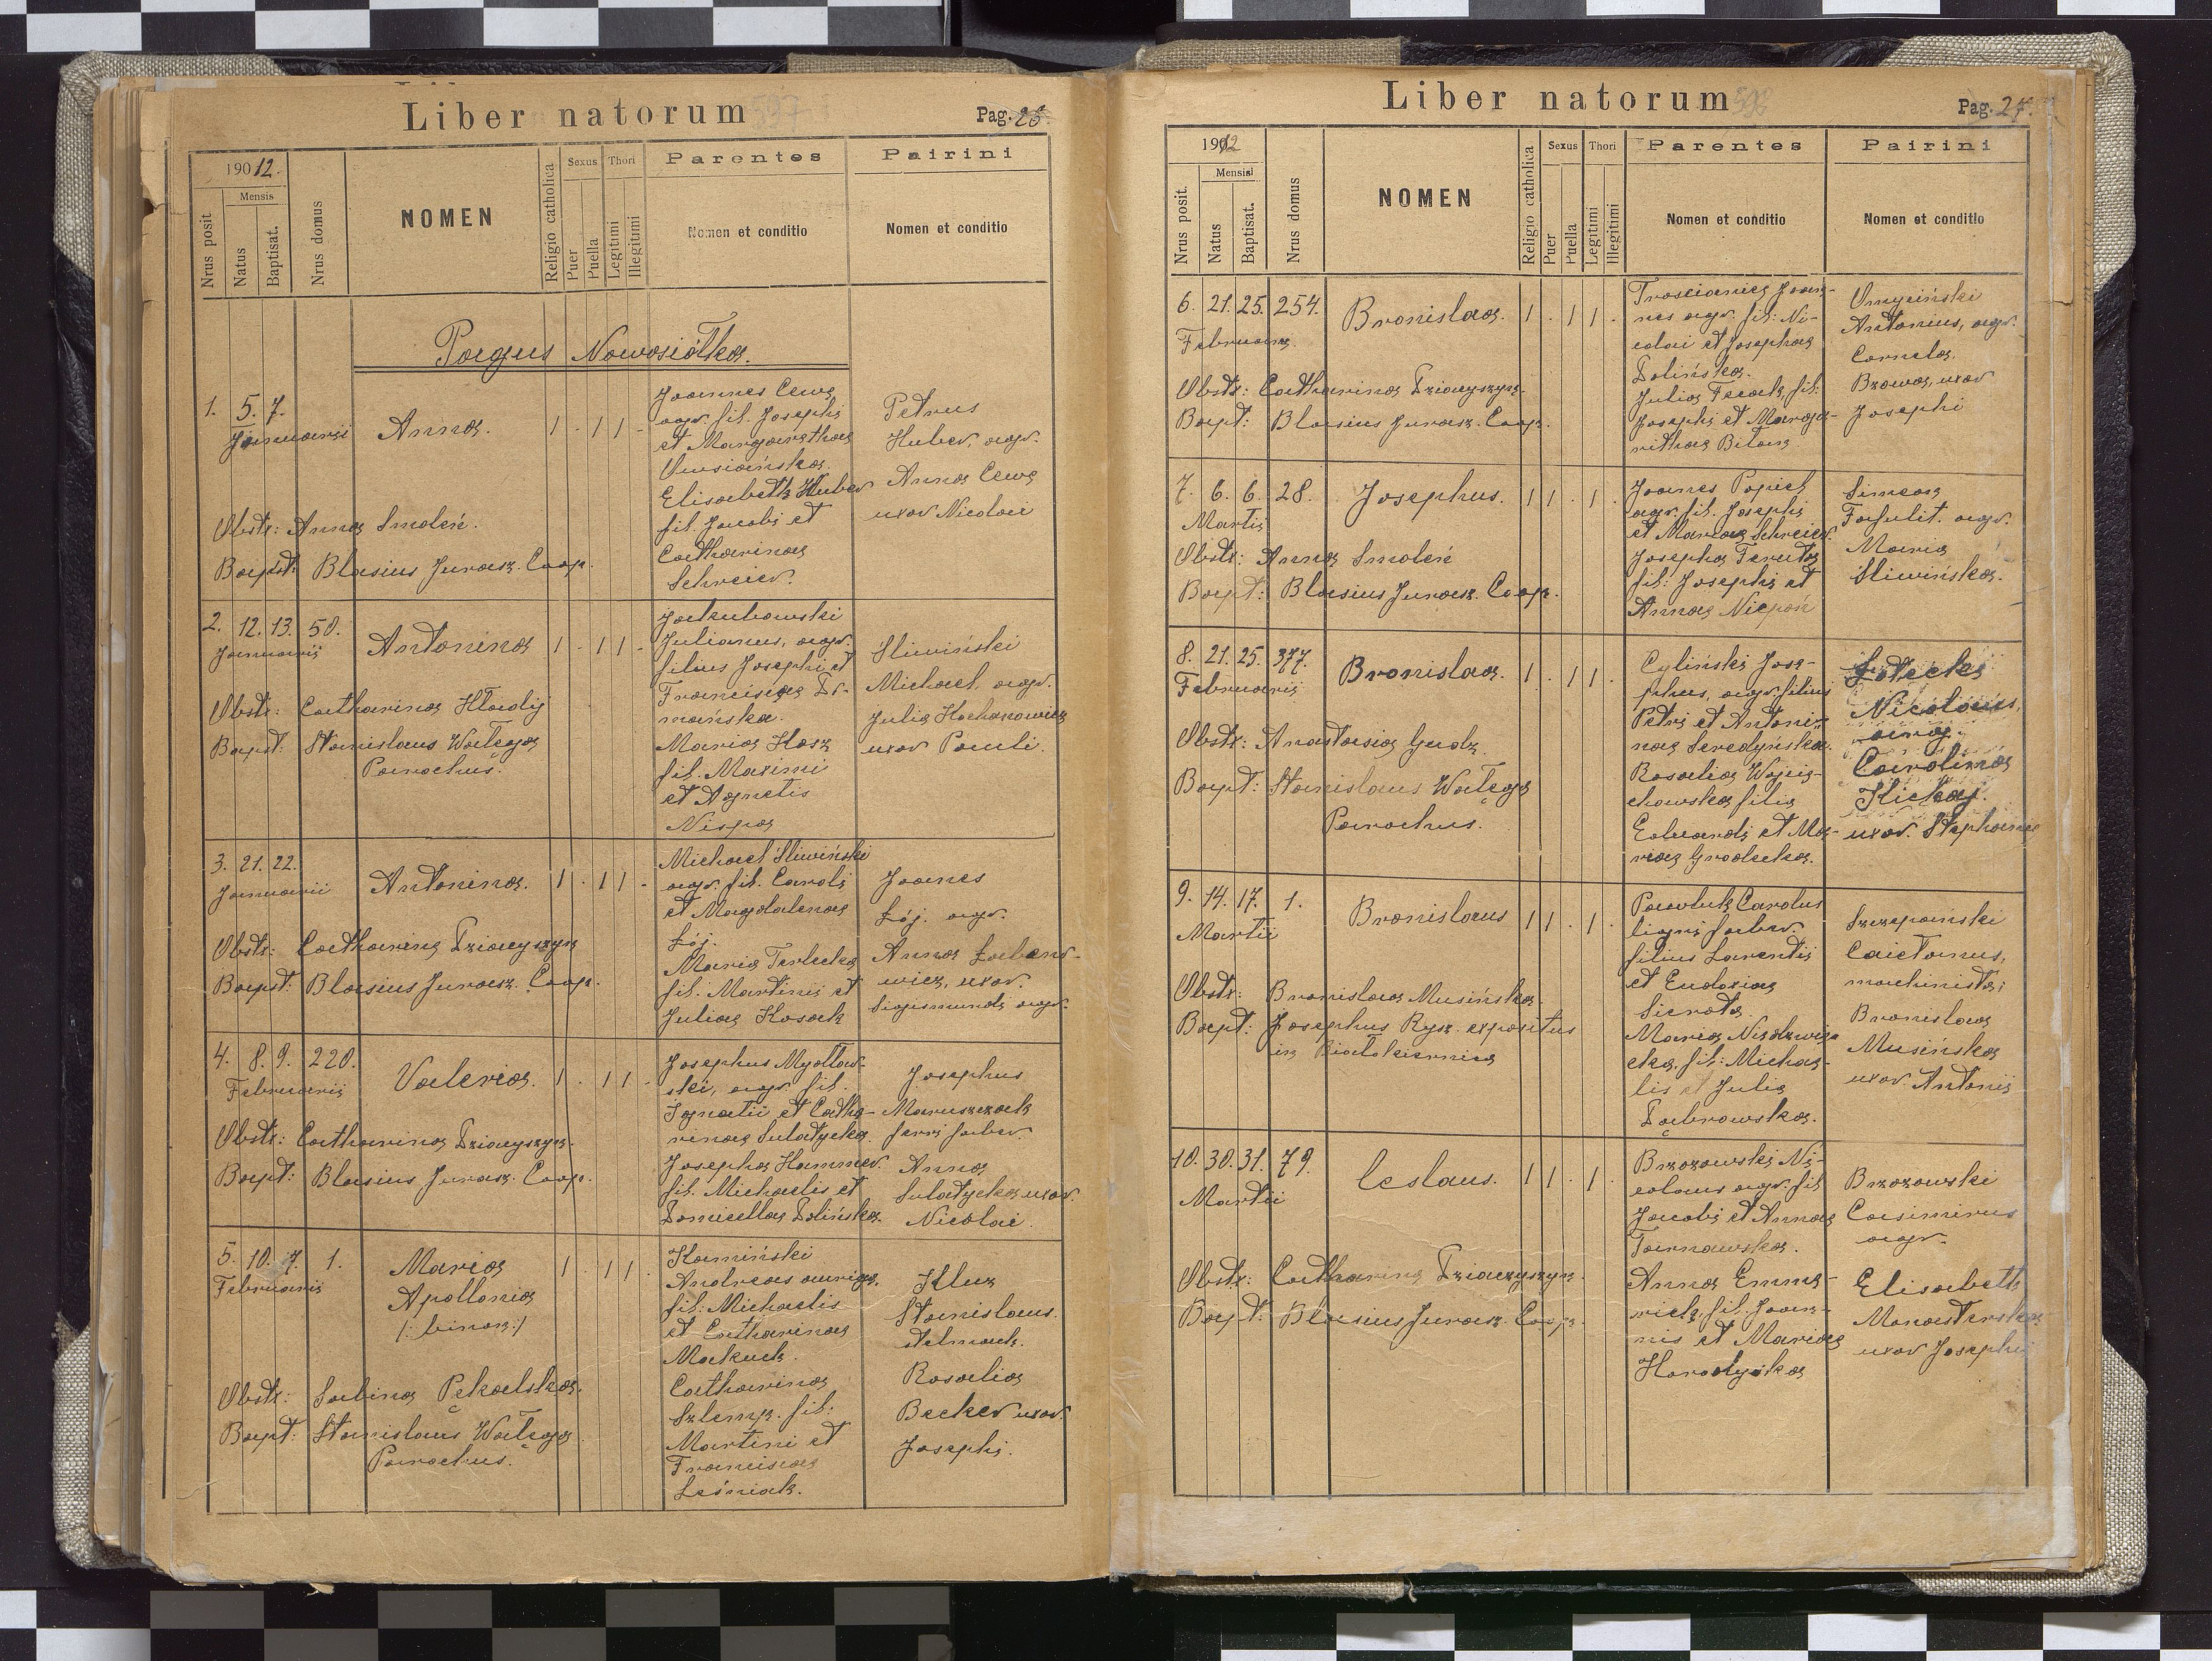 Liber natorum
597
Pag. 26.
1912.
Nrus posit.
Mensis
Natus
Baptisat.
Nrus domus
NOMEN
Religio catholica
Sexus
Puer
Puella
Thori
Legitimi
Illegitimi
Parentes
Nomen et conditio
Pairini
Nomen et conditio
Pagus Nowosiółka.
1. 5. 7.
Januarii
Anna.
1 . 1 1 .
Joannes Cewe
agr. fil. Josephi
et Margarethae
Elisabeth Huber
fil. Jacobi et
Catharinae
Schreier.
Petrus
Huber, agr.
Anna Cewe
uxor Nicolai
Obstr: Anna Smoleń.
Bapt: Blasius Jurasz. Coop.
2. 12. 13. 50.
Januarii
Antonina
1 . 1 1 .
Jakubowski
Julianus, agr.
filius Josephi et
Franciscae Do-
mańska.
Maria Kosz
fil. Maximi
et Agnetis
Nispa
Sliwiński
Michael, agr.
Julia Kochanowicz
uxor Pauli.
Obstr: Catharina Hladij
Bapt: Stanislaus Wałęga
Parochus.
3. 21. 22.
Januarii
Antonina.
1 . 1 1 .
Michael Sliwiński
agr. fil. Caroli
et Magdalenae
Łój.
Maria Terlecka
fil. Martini et
Juliae Kosack
Joanes
Łój. agr.
Anna
wicz, uxor
Sigismundi agr.
Obstr: Catharina Dziaczyszyn
Bapt: Blasius Jurasz. Coop.
4. 8. 9. 220.
Februarii
Valeria.
1 . 1 1 .
Josephus Mydłow-
ski, agr. fil.
Ignatii et Catha-
rinae Sulatycka.
Josepha Hammer.
fil. Michaelis et
Domicellae Dolińska.
Josephus
Maruszczak
ferri faber.
Anna
Sulatycka uxor
Nicolai.
Obstr: Catharina Dziaczyszyn.
Bapt: Blasius Jurasz. Coop.
5. 10. 7. 1.
Februarii
Maria
Apollonia
/: bina :/
1 . 1 1 .
Kamiński
Andreas auriga.
fil: Michaelis
et Catharinae
Mackuck.
Catharina
Szlemp. fil:
Martini et
Franciscae
Leśniak.
Kluz
Stanislaus.
stelmach.
Rosalia
Becker uxor.
Josephi.
Obstr: Sabina Pękalska.
Bapt: Stanislaus Wałęga
Parochus.
Liber natorum
598
Pag. 27.
1912
Nrus posit.
Mensisi
Natus
Baptisat.
Nrus domus
NOMEN
Religio catholica
Sexus
Puer
Puella
Thori
Legitimi
Illegitimi
Parentes
Nomen et conditio
Pairini
Nomen et conditio
6. 21. 25. 254.
Februarii.
Bronislaa.
1 . 1 1 .
Troscianiec Joan-
nes agr. fil: Ni-
colai et Josephae
Dolińska.
Julia Ficack, fil.
Josephi et Marga-
rithae Bitans
Antonius, agr.
Cornela.
Brzowa, uxor
Josephi
Obstr: Catharina Dziaczyszyn.
Bapt: Blasius Jurasz. Coop.
7. 6. 6. 28.
Martii
Josephus.
1 1 . 1 .
Joanes Popiel
agr. fil. Josephi
et Mariae Schreier.
Josepha Feruta
fil: Josephi et
Annae Niepoń
Simeon
Fafulit. agr.
Maria
Sliwińska.
Obstr: Anna Smoleń
Bapt: Blasius Jurasz. Coop.
8. 21. 25. 377.
Februarii
Bronislaa.
1 . 1 1 .
Cyliński Jose-
phus, agr. filius
Petri et Antoni-
nae Seredyńska.
Rosalia Wojcie-
chowska filia
Eduardi et Ma-
riae Grodecka.
Łotecki
Nicolaus,
Carolina
Kickaj.
uxor. Stephani
Obstr: Anastasia Gudz.
Bapt: Stanislaus Wałęga
Parochus.
9. 14. 17. 1.
Martii
Bronislaus
1 1 . 1 .
Pawluk Carolus
ligni faber.
filius Larentii
et Eudoxiae
Sierota.
Maria Niedzwie-
cka, fil: Michae-
lis et Julia
Dąbrowska.
Szczepański
Caietanus,
machinista;
Bronislaa
Musińska
uxor. Antonii
Obstr: Bronislaa Musińska.
Bapt: Josephus Rysz. expositus
in Białokiernica
10. 30. 31. 79.
Martii
Ceslaus.
1 1 . 1 .
Brzozowski Ni-
colaus agr. fil
Jacobi et Annae
Tarnawska.
Anna Emme-
rich, fil. Joan-
nis et Mariae
Horodyska
Brzozowski
Casimirus
agr.
Elisabeth
Monasterska
uxor Josephi
Obstr: Catharina Dziaczyszyn.
Bapt: Blasius Jurasz. Coop.